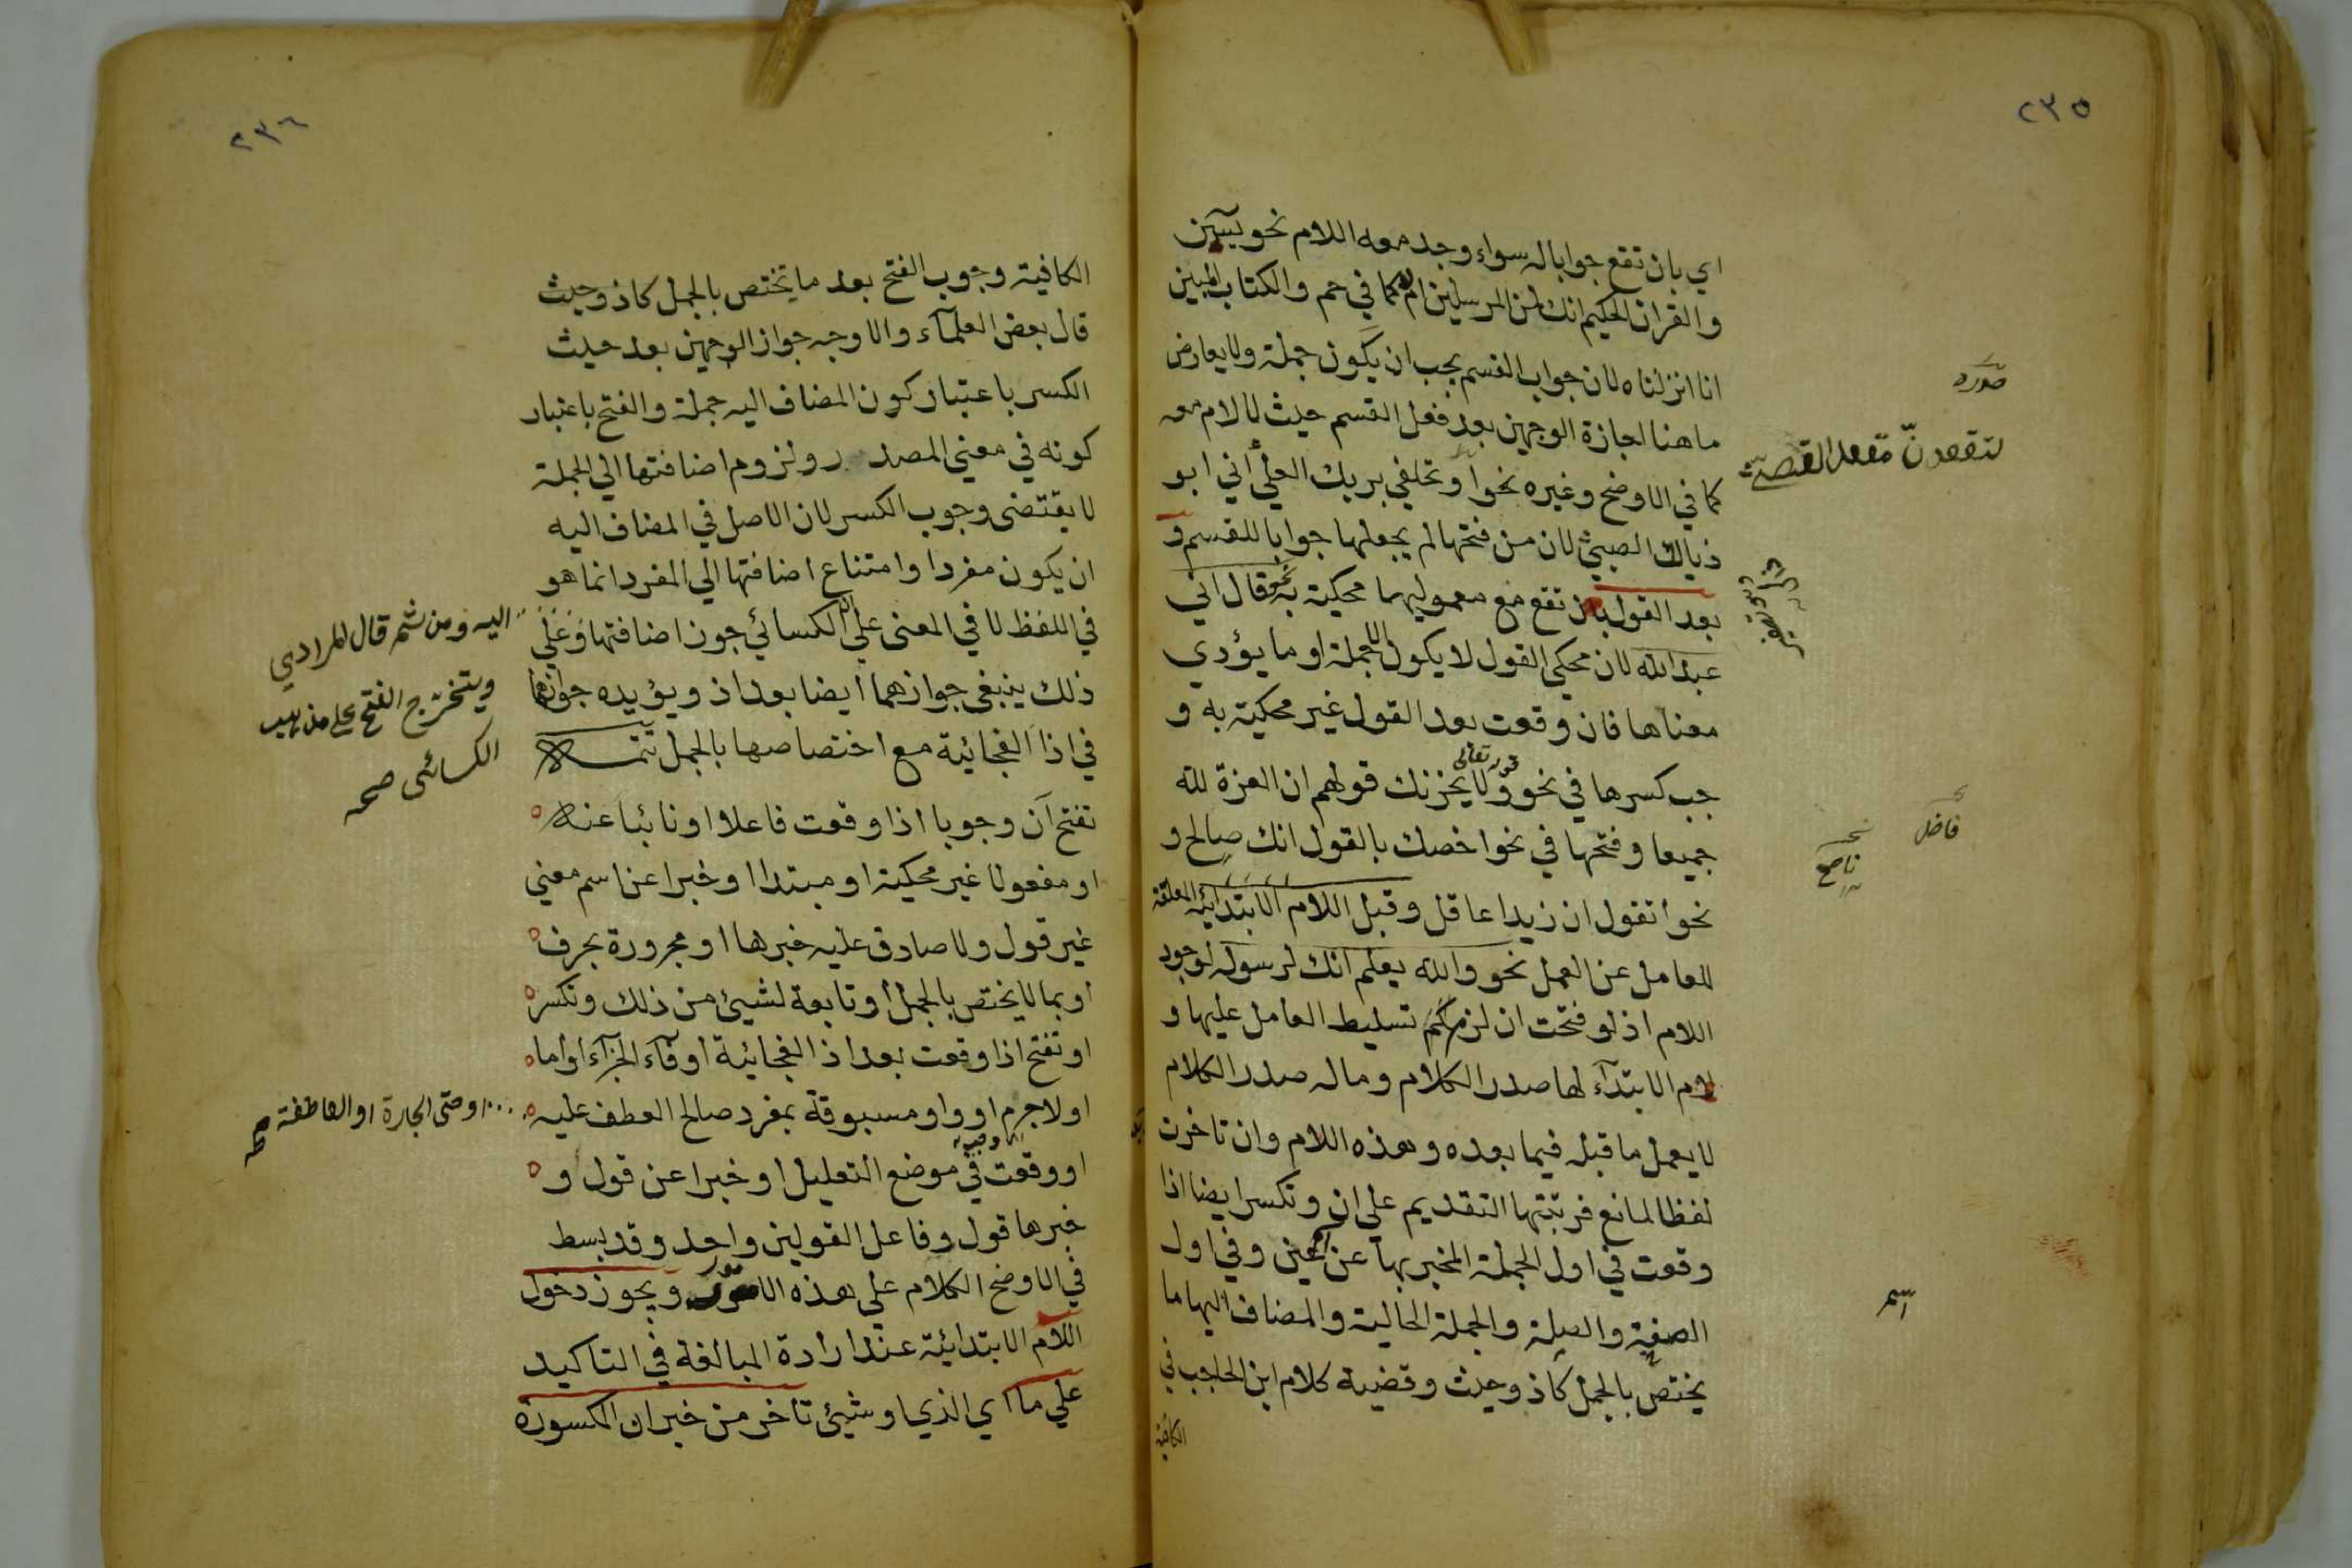 ٢٣٥
اي بان تقع جوابا له سواء وجد معه اللام نحو يس
والقران الحكيم انك لمن المرسلين ام لا كما في حم والكتاب المبين
انا انزلناه لان جواب القسم يجب ان يكون جملة ولا يعارض
ما هنا اجازة الوجهين بعد فعل القسم حيث لا لام معه
كما في الاوضح وغيره نحو او تحلفي بربك العلي اني ابو
ذيالك الصبي لان من فتحها لم يجعلها جوابا للقسم و
بعد القول بان تقع مع معموليها محكية به نحو قال اني
عبد الله لان محكي القول لا يكون الا جملة او ما يؤدي
معناها فان وقعت بعد القول غير محكية به و
جب كسرها في نحو قوله تعالى ولا يحزنك قولهم ان العزة لله
جميعا وفتحها في نحو اخصك بالقول انك صالح و
نحو اتقول ان زيدا عاقل وقبل اللام الابتدائية المعلقة
للعامل عن العمل نحو والله يعلم انك لرسوله لوجود
اللام اذ لو فتحت ان لزم تسليط العامل عليها و
لام الابتدآء لها صدر الكلام وما له صدر الكلام
لا يعمل ما قبله فيما بعده وهذه اللام وان تاخرت
لفظا لمانع فرتبتها التقديم علي ان وتكسر ايضا اذا
وقعت في اول الجملة المخبر بها عن اسم عين وفي اول
الصفة والصلة والجملة الحالية والمضاف اليها ما
يختص بالجمل كاذ وحيث وقضية كلام ابن الحاجب في
الكافية
صدره
لتقعدنّ مقعد القصيّ
فاضل
ناصح
اسم
٢٣٦
الكافية وجوب الفتح بعد ما يختص بالجمل كاذ وحيث
قال بعض العلمآء والاوجه جواز الوجهين بعد حيث
الكسر باعتبار كون المضاف اليه جملة والفتح باعتبار
كونه في معني المصدر ولزوم اضافتها الي الجملة
لا يقتضى وجوب الكسر لان الاصل في المضاف اليه
ان يكون مفردا وامتناع اضافتها الي المفرد انما هو
في اللفظ لا في المعنى علي ان الكسائي جوز اضافتها وعلي
ذلك ينبغي جوازهما ايضا بعد اذ ويؤيده جوازهما
في اذا الفجائية مع اختصاصها بالجمل تتمة
تفتح آن وجوبا اذا وقعت فاعلا او نائبا عنه
او مفعولا غير محكية او مبتدا او خبرا عن اسم معني
غير قول ولا صادق عليه خبرها او مجرورة بحرف
او بما لا يختص بالجمل او تابعة لشيئ من ذلك وتكسر
او تفتح اذا وقعت بعد اذ الفجائية او فآء الجزآء او اما
او لا جرم او واو مسبوقة بمفرد صالح العطف عليه
او وقعت في موضع التعليل او خبرا عن قول و
خبرها قول وفاعل القولين واحد وقد بسط
في الاوضح الكلام علي هذه الامور ويجوز دخول
اللام الابتدائية عند ارادة المبالغة في التاكيد
علي ما اي الذي او شيئ تاخر من خبر ان المكسورة
اليه ومن ثم قال المرادي
ويتخرّج الفتح على مذهب
الكسائى صح
او حتى الجارة او العاطفة صح